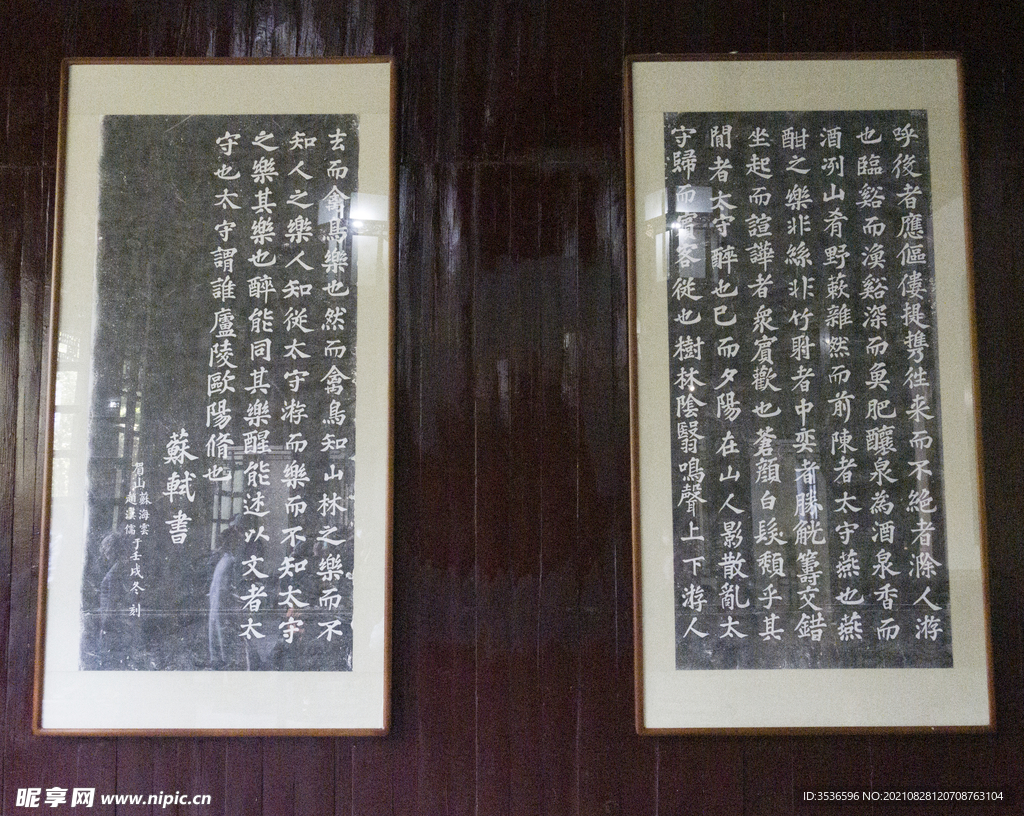 呼後者應傴僂提攜徃來而不絶者滁人游
也臨谿而漁谿深而魚肥釀泉為酒泉香而
酒冽山肴野蔌雜然而前陳者太守燕也燕
酣之樂非絲非竹射者中弈者勝觥籌交錯
坐起而諠譁者衆賓歡也蒼顔白髮頽乎其
間者太守醉也已而夕陽在山人影散亂太
守歸而賓客従也樹林陰翳鳴聲上下游人
去而禽鳥樂也然而禽鳥知山林之樂而不
知人之樂人知従太守游而樂而不知太守
之樂其樂也醉能同其樂醒能述以文者太
守也太守謂誰廬陵歐陽脩也
蘇軾書
眉山蘇海雲
趙漢儒于壬戌冬刻
昵享网 www.nipic.cn
ID:3536596 NO:20210828120708763104